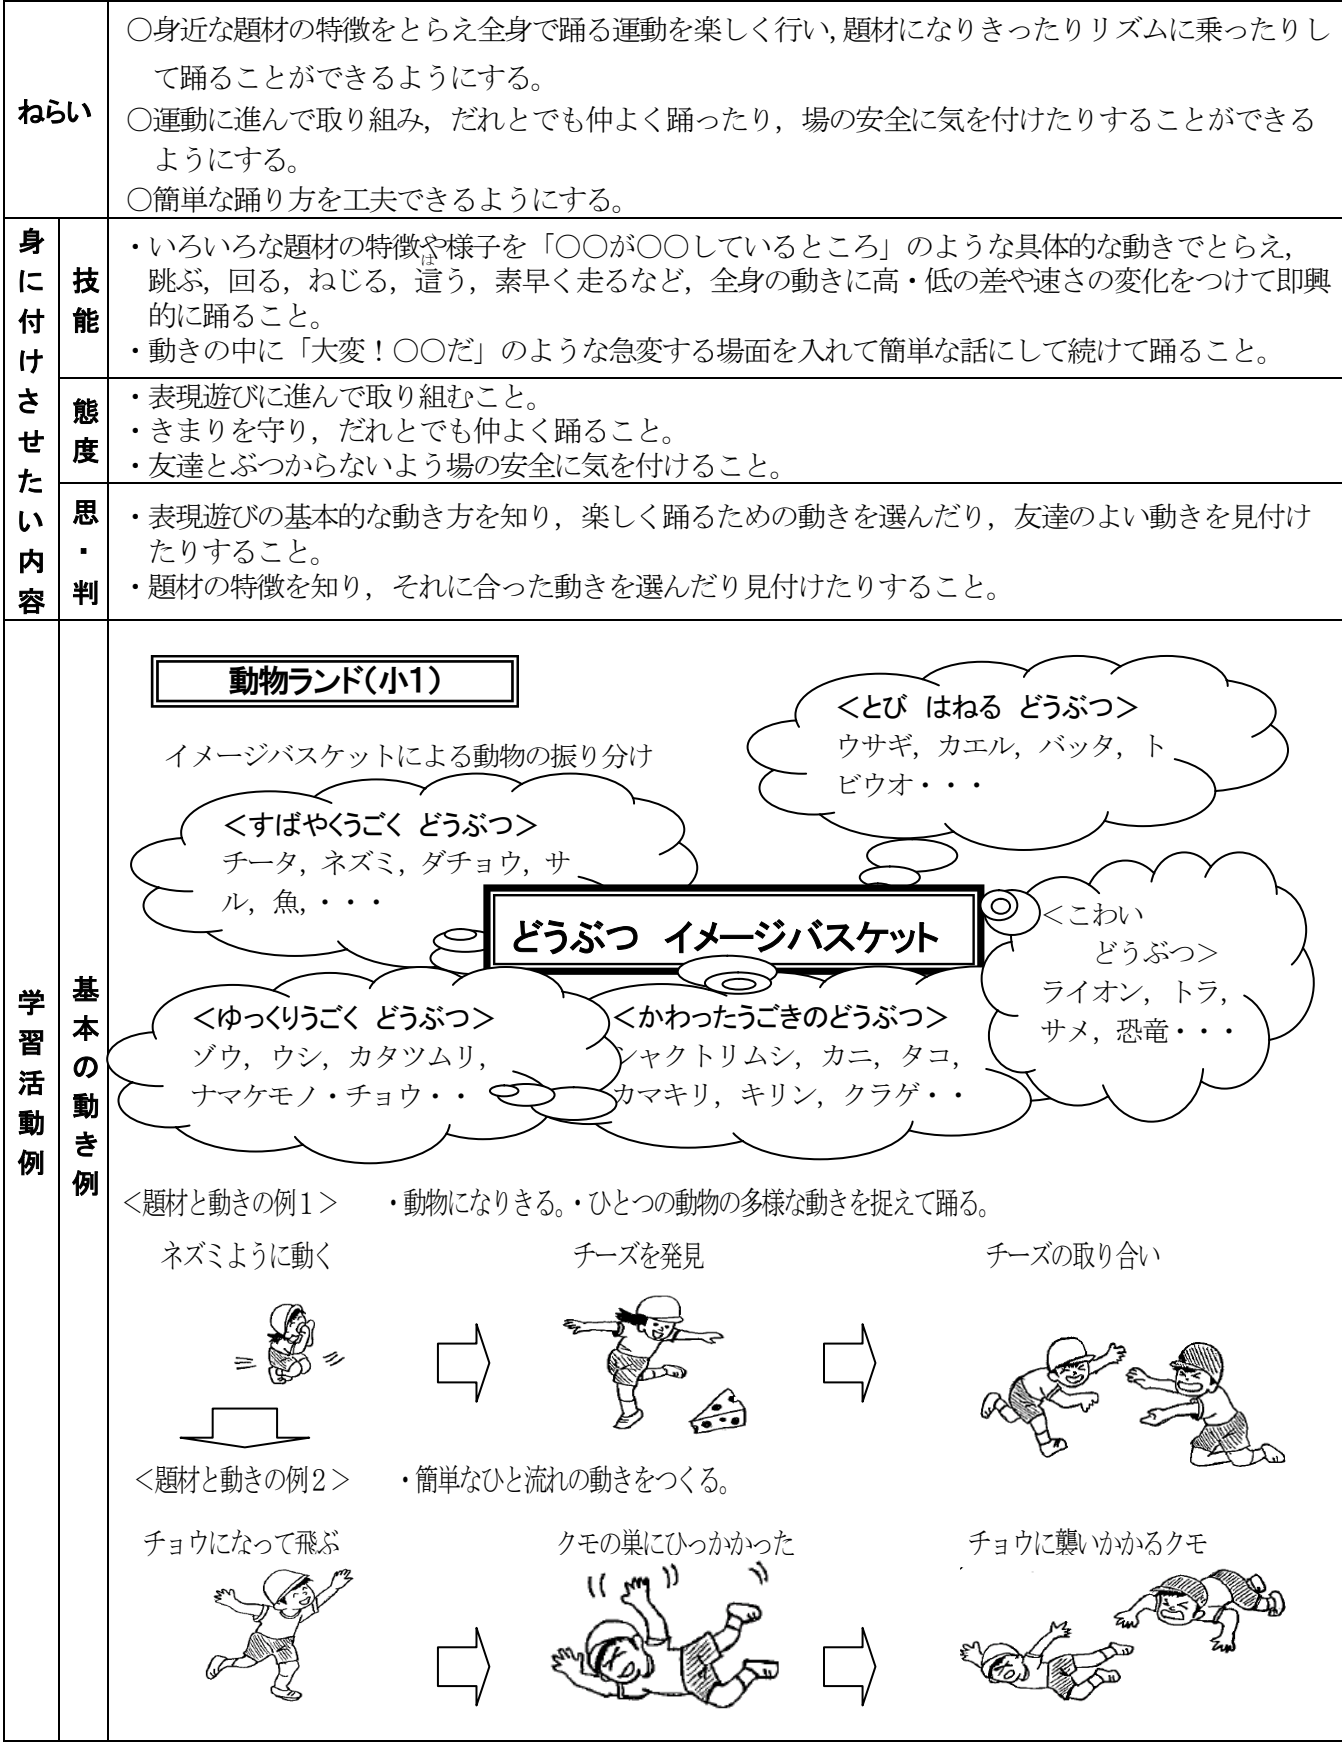 ねらい
○身近な題材の特徴をとらえ全身で踊る運動を楽しく行い,題材になりきったりリズムに乗ったりし
て踊ることができるようにする。
○運動に進んで取り組み，だれとでも仲よく踊ったり，場の安全に気を付けたりすることができる
ようにする。
○簡単な踊り方を工夫できるようにする。
身に付けさせたい内容
技能
・いろいろな題材の特徴や様子を「○○が○○しているところ」のような具体的な動きでとらえ，
は
跳ぶ，回る，ねじる，這う，素早く走るなど，全身の動きに高・低の差や速さの変化をつけて即興
的に踊ること。
・動きの中に「大変！○○だ」のような急変する場面を入れて簡単な話にして続けて踊ること。
態度
・表現遊びに進んで取り組むこと。
・きまりを守り，だれとでも仲よく踊ること。
・友達とぶつからないよう場の安全に気を付けること。
思・判
・表現遊びの基本的な動き方を知り，楽しく踊るための動きを選んだり，友達のよい動きを見付け
たりすること。
・題材の特徴を知り，それに合った動きを選んだり見付けたりすること。
学習活動例
基本の動き例
動物ランド(小１)
イメージバスケットによる動物の振り分け
＜とび　はねる　どうぶつ＞
ウサギ，カエル，バッタ，ト
ビウオ・・・
＜すばやくうごく　どうぶつ＞
チータ，ネズミ，ダチョウ，サ
ル，魚，・・・
どうぶつ　イメージバスケット
＜こわい
どうぶつ＞
ライオン，トラ，
サメ，恐竜・・・
＜ゆっくりうごく　どうぶつ＞
ゾウ，ウシ，カタツムリ，
ナマケモノ・チョウ・・
＜かわったうごきのどうぶつ＞
シャクトリムシ，カニ，タコ，
カマキリ，キリン，クラゲ・・
＜題材と動きの例１＞　・動物になりきる。・ひとつの動物の多様な動きを捉えて踊る。
ネズミように動く　チーズを発見　チーズの取り合い
＜題材と動きの例２＞　・簡単なひと流れの動きをつくる。
チョウになって飛ぶ　クモの巣にひっかかった　チョウに襲いかかるクモ